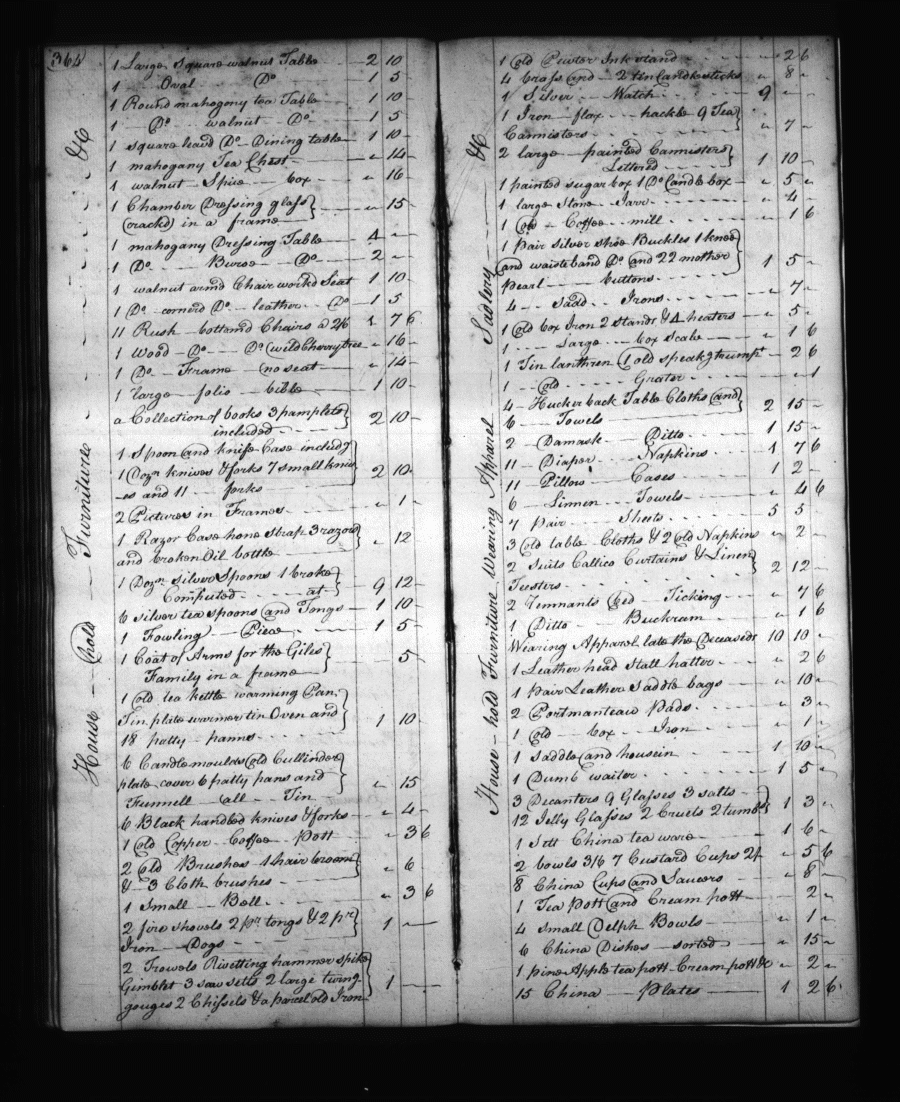 364
House hold Furniture &c
1 Large square walnut Table 2 10 -
1 Oval Do 1 5
1 Round mahogony tea Table 1 10 -
1 Do walnut Do 1 5
1 square leavd Do Dining table 1 10 -
1 mahogany Tea Chest " 14 -
1 walnut Spice box " 16 -
1 Chamber Dressing glass
(crackd) in a frame " 15 -
1 mahogany Dressing Table 4 - -
1 Do Buroe Do 2 -
1 walnut armd Chair workd Seat 1 10
1 Do cornerd Do leather Do 1 5
11 Rush bottomd Chairs a 2/6 1 7 6
1 Wood Do Do (wild Cherrytree " 16 -
1 Do Frame (no seat " 14 -
1 large folio bible 1 10
a Collection of books 3 pamplets
included 2 10 -
1 Spoon and knife Case includg
1 Dozn knives & forks 7 small kniv
es and 11 forks 2 10 -
2 Pictures in Frames " 1 -
1 Razor Case hone Strap 3 razors
and broken Oil bottle " 12
1 Dozn Silver Spoons 1 broke
Computed at 9 12 -
6 silver tea spoons and Tongs 1 10 -
1 Fowling Piece 1 5
1 Coat of Arms for the Giles
Family in a frame 5 -
1 old tea kettle warming Pan
Tin plate warmer tin Oven and
18 patty panns 1 10 -
6 Candlemoulds old Cullinder
plate cover 6 patty pans and
Funnell all Tin " 15
6 Black handled knives & forks " 4 -
1 old Copper Coffee Pott " 3 6
2 old Brushes 1 hair broom
& 3 Cloth brushes " 6
1 Small Bell " 3 6
2 fire shovels 2 pr tongs & 2 pr
Iron Dogs 1 - -
2 Trowels Rivetting hammer spike
Gimblet 3 saw setts 2 large
gouges 2 Chissels & a parcel old Iron 1 - -
House hold Furniture Wearing Apparel Sadlery &c
1 old Pewter Inkstand " 2 6
4 Brass and 2 tin Candlesticks " 8 "
1 Silver Watch 9 " -
1 Iron flax hackle 9 Tea
Cannisters " 7 -
2 large painted Cannisters
Lettered 1 10 -
1 painted sugar box 1 Do Candle box " 5 "
1 large Stone Jarr " 4 -
1 old Coffee mill " 1 6
1 Pair silver shoe Buckles 1 knee
and waistband Do and 22 mother
Pearl buttons 1 5 -
4 Sadd Irons " 7 -
1 old box Iron 2 stands & 4 heaters " 5 -
1 Large box Scale " 1 6
1 Tin lanthren (1 old speakg trump " 2 6
1 old Grater " " 1
4 Huckerback Table Cloths and
6 Towels 2 15 -
2 Damask Ditto 1 15 -
11 Diaper Napkins 1 7 6
11 Pillow Cases 1 2 -
6 Linnen Towels " 4 6
7 pair Sheets 5 5
3 old table Cloths & 2 old Napkins " 2 "
2 Suits Callico Curtains & Linen
Teesters 2 12 -
2 Remnants Bed Ticking " 7 6
1 Ditto Buckram " 1 6
Wearing Apparel late the Deceaseds 10 10 "
1 Leather head Stall hatter " 2 6
1 Pair Leather Saddle bags " 10 "
2 Portmanteau Pads " 3 "
1 old box Iron " 1 "
1 Saddle and housein 1 10 "
1 Dumb waiter 1 5 "
3 Decanters 9 Glasses 3 salts
12 Jelly Glasses 2 Cruets 2 tumbs 1 3 "
1 Sett China tea ware 1 6 "
2 bowls 3/6 7 Custard Cups 2/ " 5 6
8 China Cups and Saucers " 8 -
1 Tea Pott and Cream pott " 2 "
4 small Delph Bowls " 1 "
6 China Dishes sorted " 15 "
1 pine Apple tea pott Cream pott &c " 2 "
15 China Plates 1 2 6